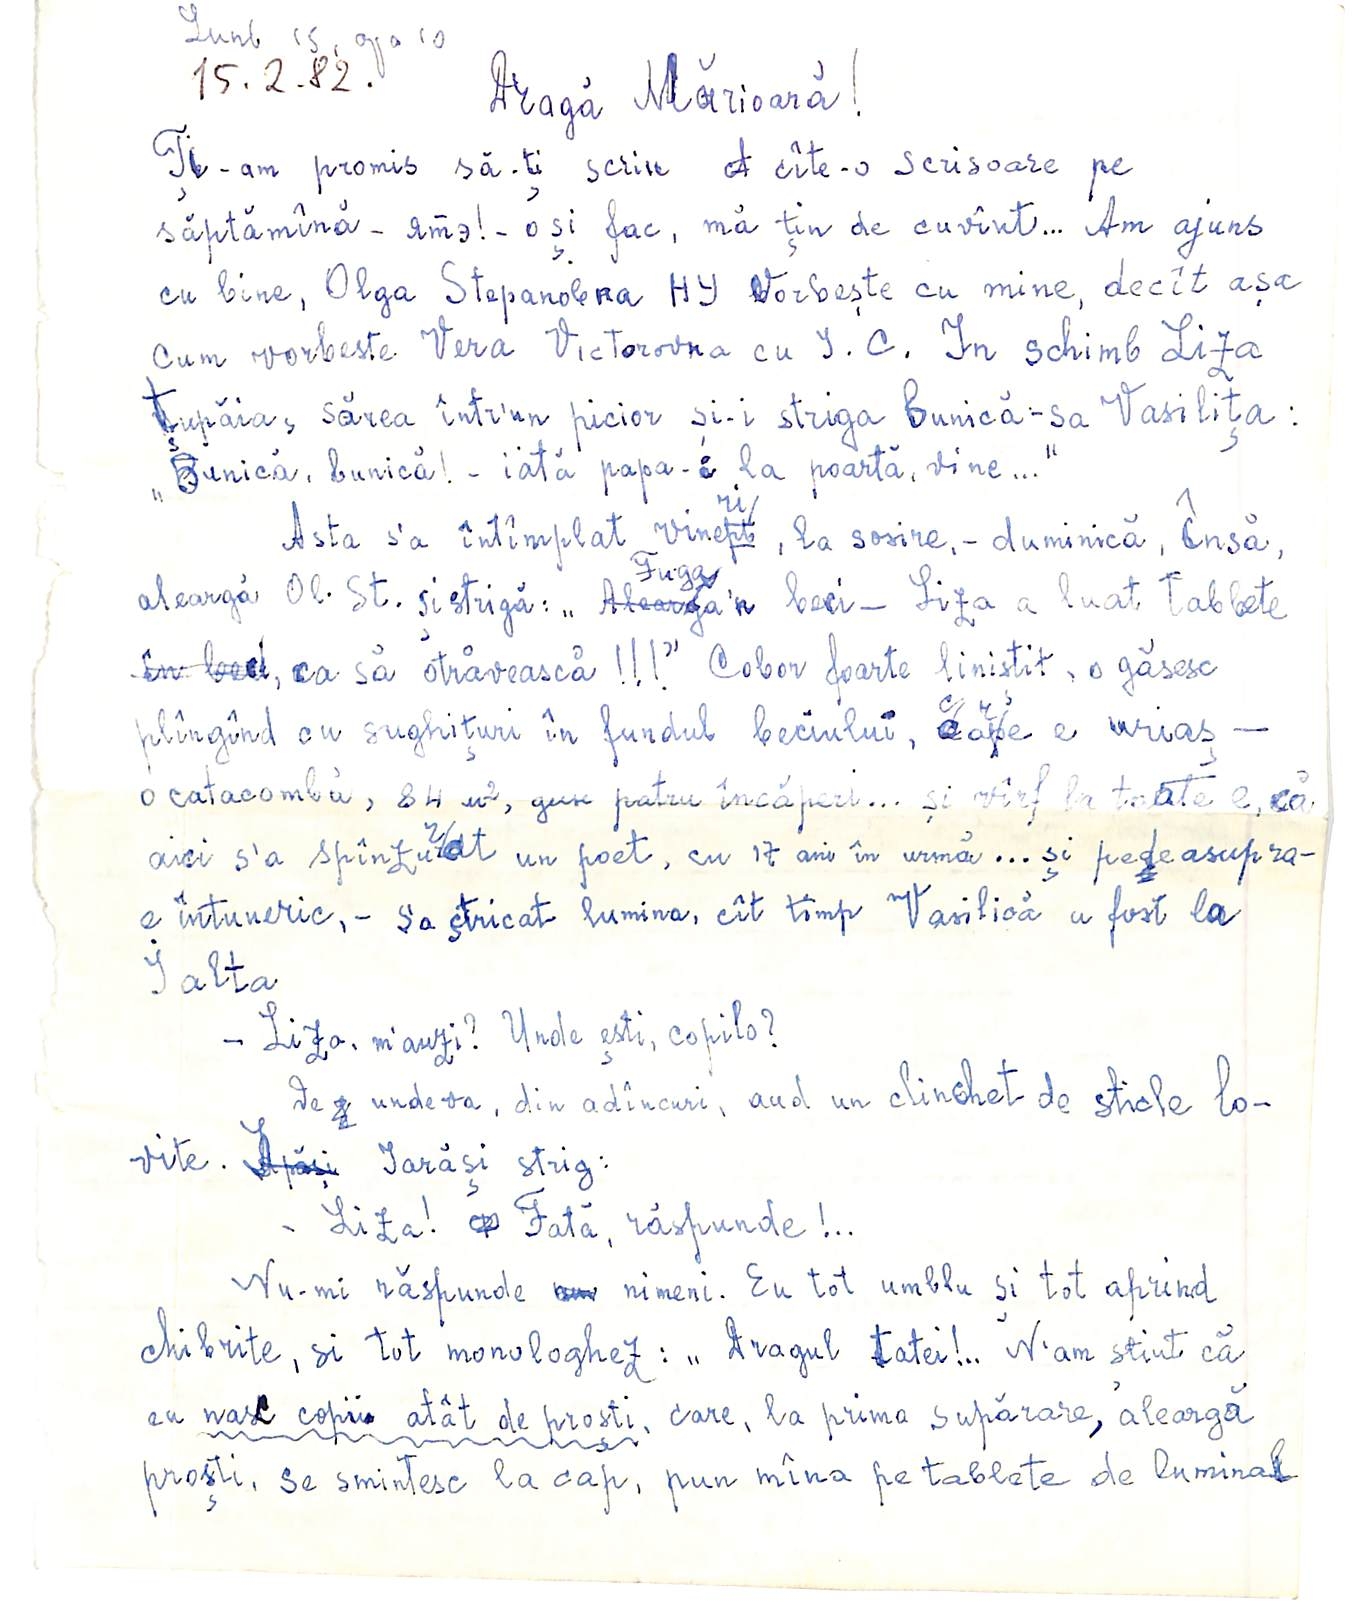 Luni 15, ora 10
15.2.82.
Dragă Mărioară!
Ți-am promis să-ți scriu cîte-o scrisoare pe
săptămînă - - o și fac, mă țin de cuvînt... Am ajuns
cu bine, Olga Stepanovna НУ Vorbește cu mine, decît așa
cum vorbeste Vera Victorovna cu I. C. In schimb Liza
țupăia, sărea într'un picior și-i striga bunică-sa Vasilița:
„Bunică, bunică! - iată papa-i la poartă, vine..."
Asta s'a întîmplat vineri, la sosire, - duminică, Însă,
aleargă Ol. St. și strigă: „ Aleargă Fuga'n beci - Liza a luat tablete
în beci, ca să otrăvească!!!" Cobor foarte linistit, o găsesc
plîngînd cu sughițuri în fundul beciului, care e uriaș —
o catacombă, 84 m², patru încăperi... și vîrf la toate e, că
aici s'a spînzurat un poet, cu 17 ani în urmă... și pe deasupra-
e întuneric, - s'a stricat lumina, cît timp Vasilică a fost la
Ialta
- Liza, m'auzi? Unde ești, copilo?
De undeva, din adîncuri, aud un clinchet de sticle lo-
vite. Iarăși strig:
- Liza! Fată, răspunde!..
Nu-mi răspunde nimeni. Eu tot umblu și tot aprind
chibrite, si tot monologhez: „ Dragul tatei!.. N'am știut că
eu nasc copii atât de prosti, care, la prima supărare, aleargă
proști, se smintesc la cap, pun mîna pe tablete de luminal